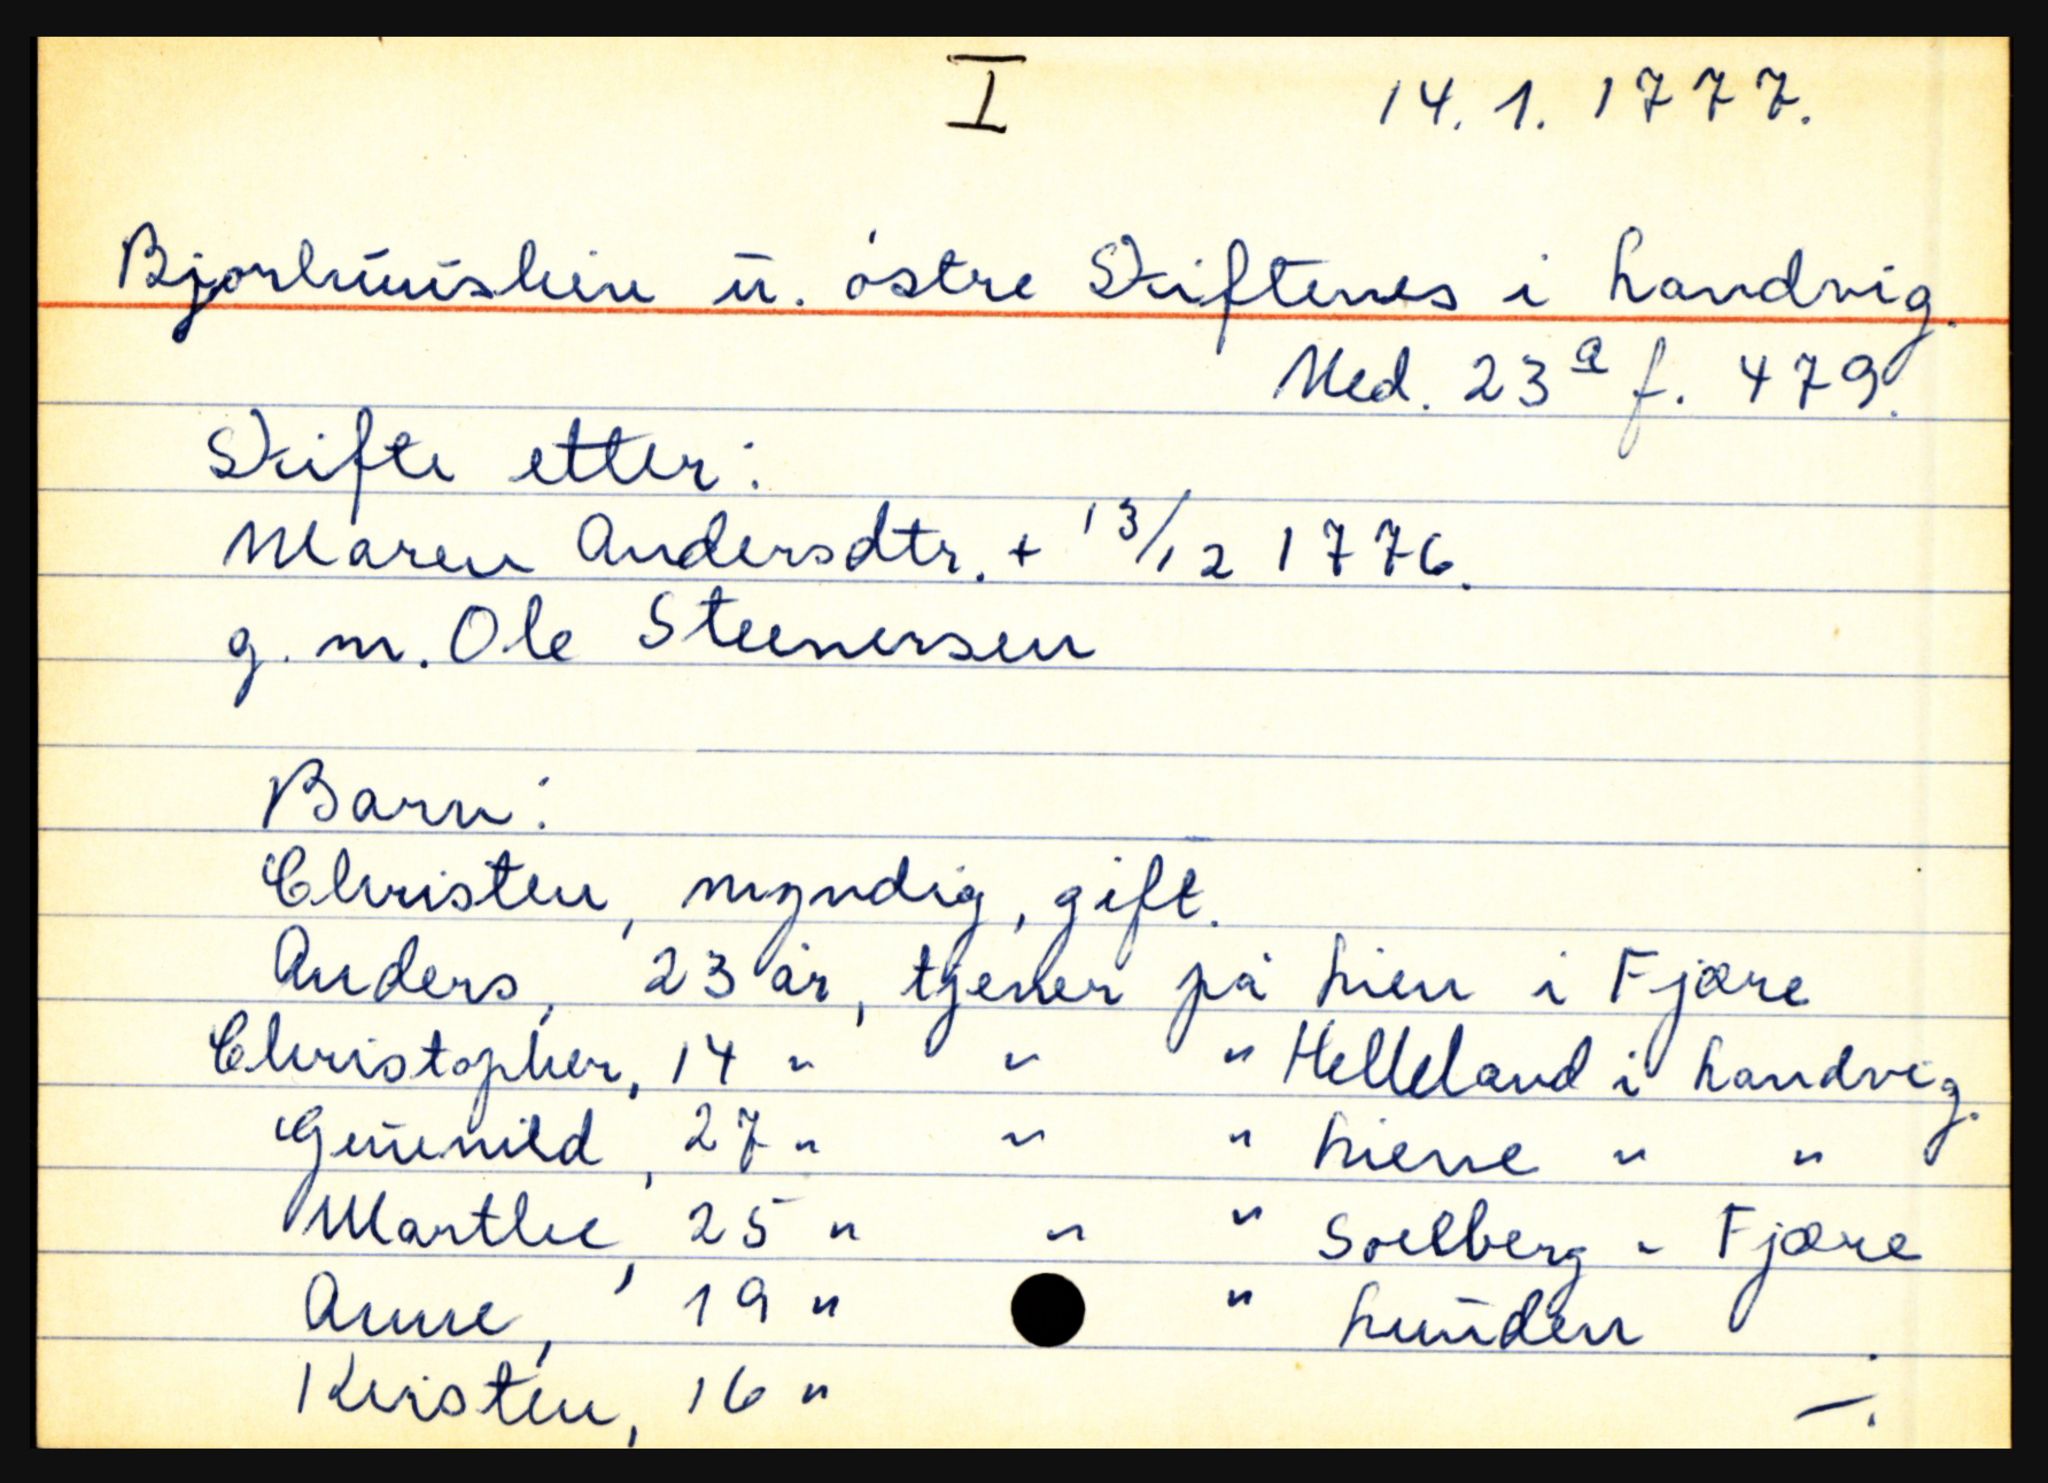 I
14.1.1777.
Bjorhuusheien u. östre Skiftenes i Landvig.
Ned. 23a f. 479.
Skifte etter:
Maren Andersdtr. + 13/12 1776.
g.m. Ole Steenersen
Barn:
Christen, myndig, gift.
Anders, 23 år, tjener på Lien i Fjære
Christopher, 14 " " " Helleland i Landvig.
Guuenild, 27 " " " Liene " "
Marthe, 25 " " " Soelberg " Fjære
Anne, 19 " " Lunden
Kirsten, 16 " -.